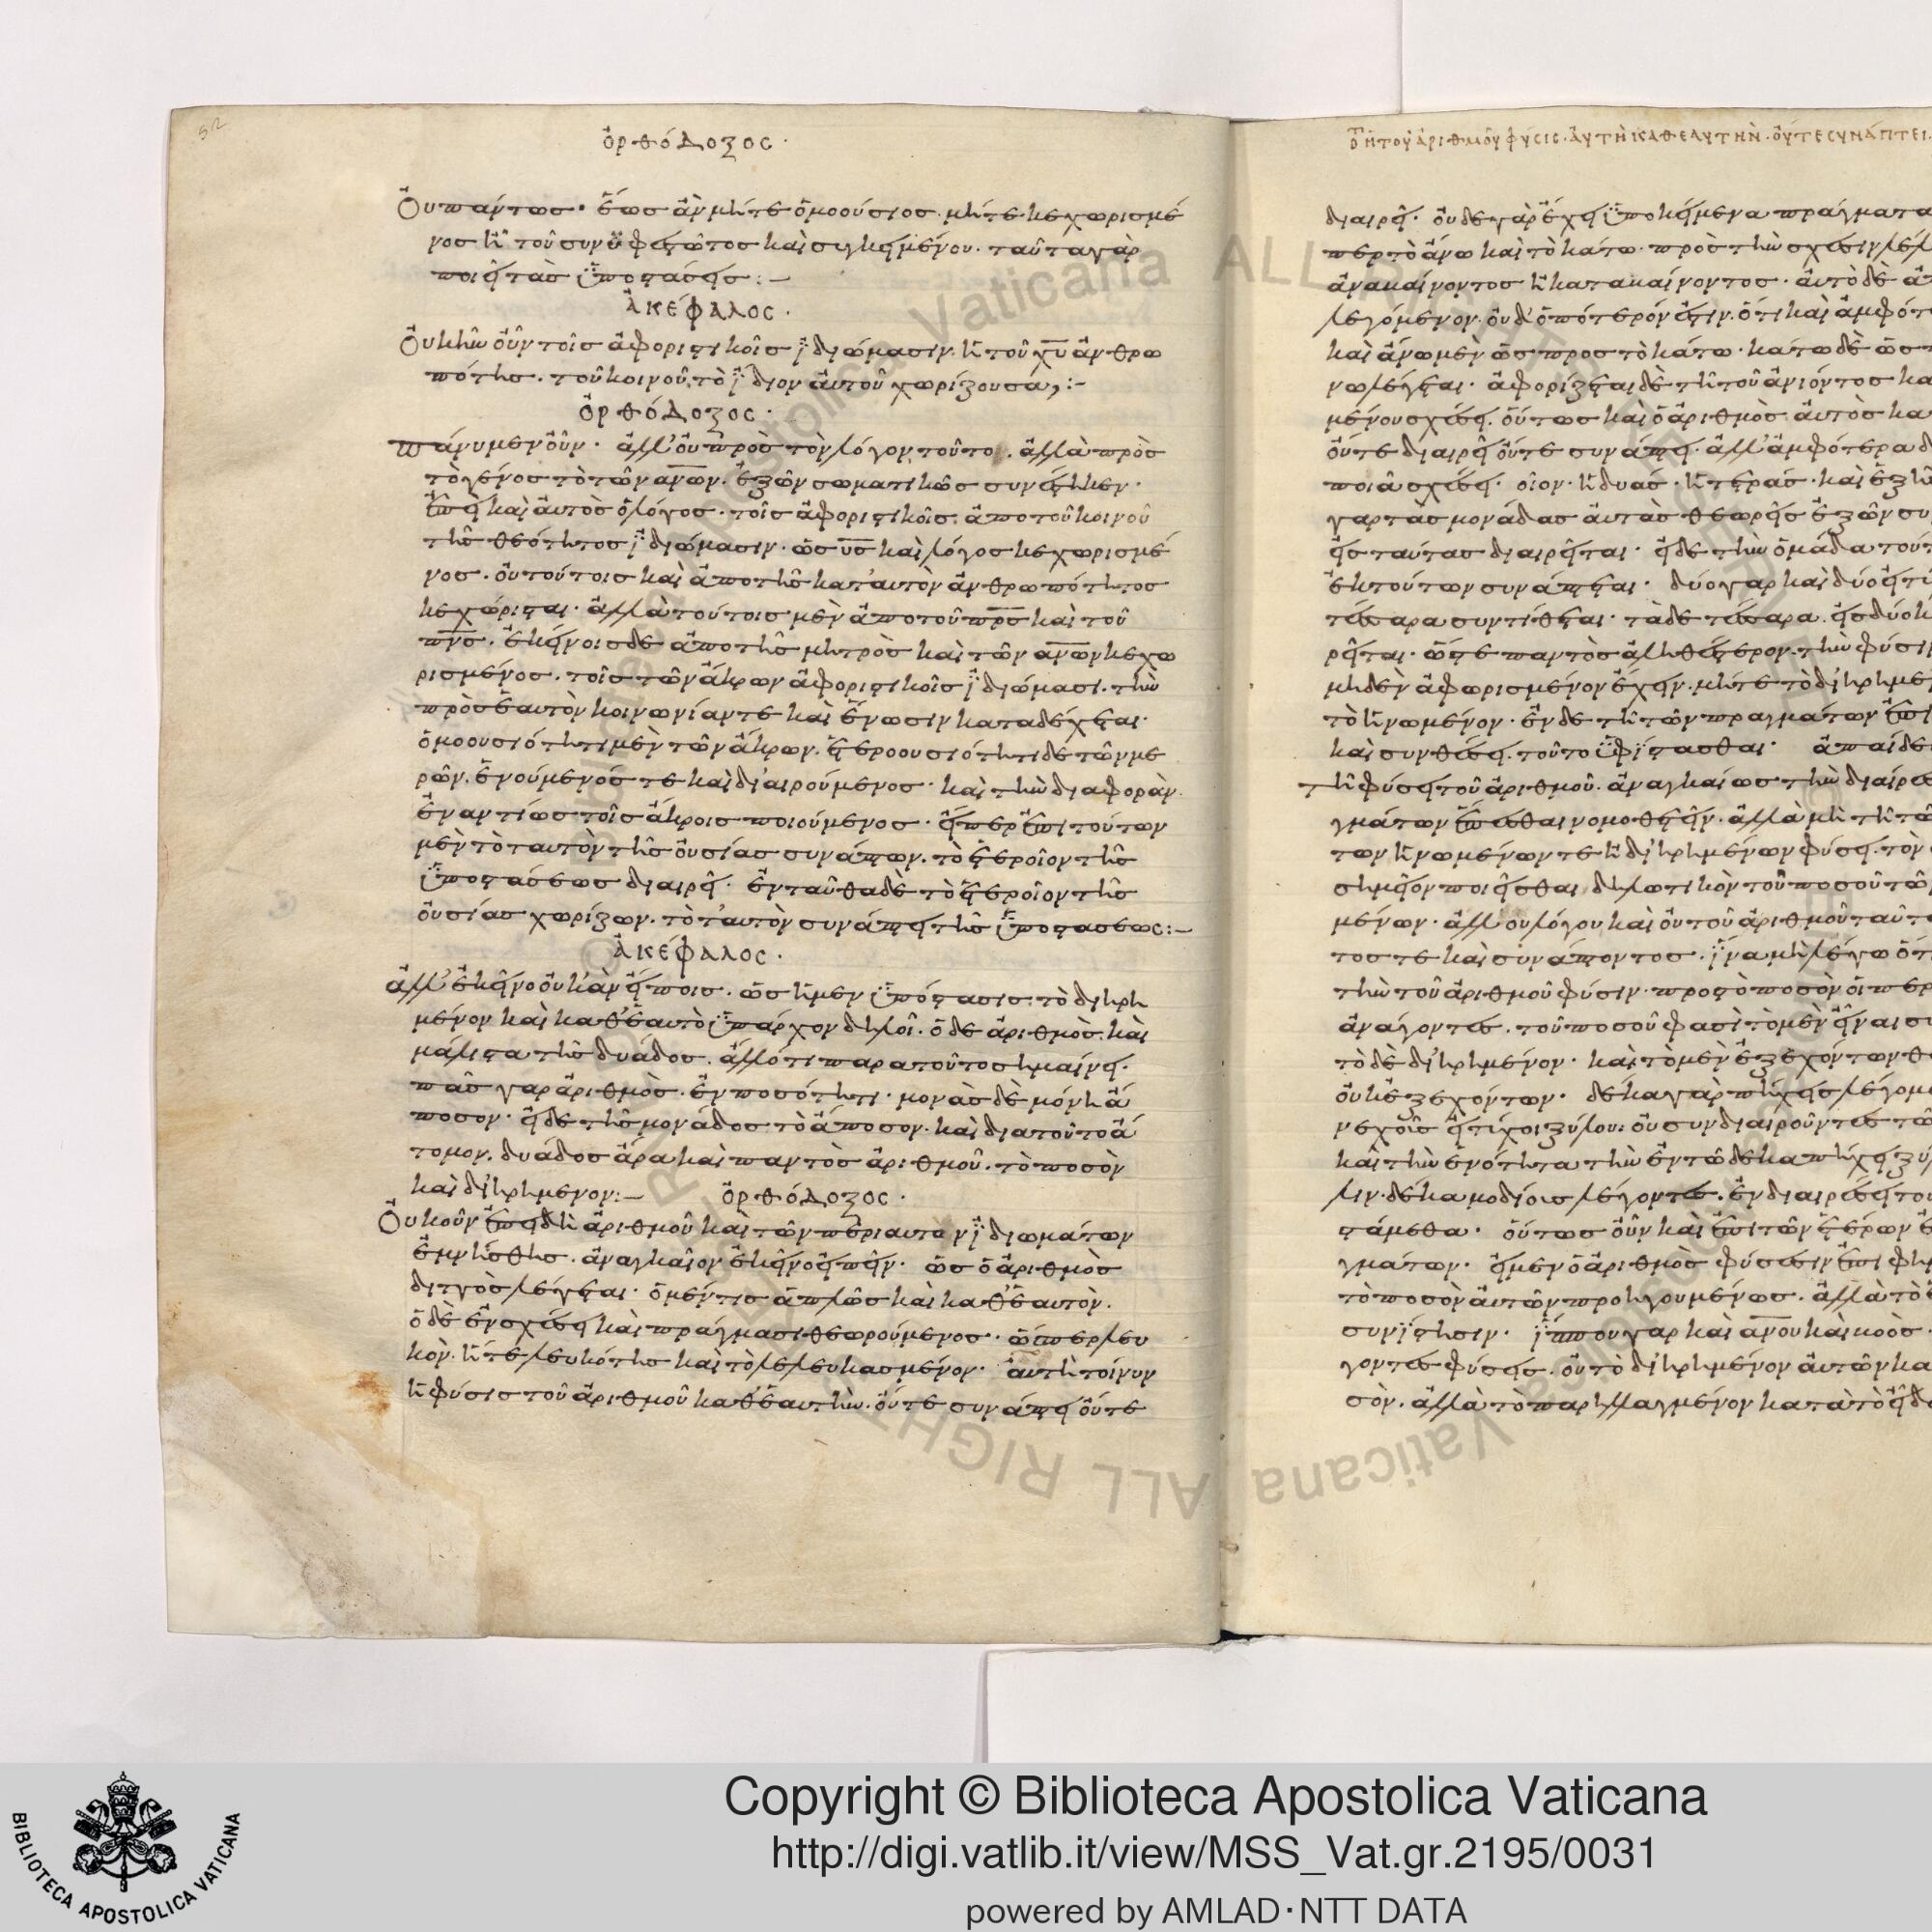 52
ὀρθόδοξος·
Οὐ πάντως· ἕως ἂν μήτε ὁμοούσιος· μήτε κεχωρισμέ
νος ἦ τοῦ συνυφεστῶτος καὶ συγκειμένου· ταῦτα γὰρ
ποιεῖ τὰς ὑποστάσεις:–
ἀκέφαλος·
Οὐκ ἦν οὖν τοῖς ἀφοριστικοῖς ἰδιώμασιν· ἡ τοῦ χυ ἀνθρω
πότης· τοῦ κοινοῦ τὸ ἴδιον αὐτοῦ χωρίζουσα,:–
ὀρθόδοξος·
πάνυ μεν οὖν· ἀλλ' οὐ πρὸς τὸν λόγον τοῦτο· ἀλλὰ πρὸς
τὸ γένος τὸ τῶν ανων· ἐξ ὧν σωματικῶς συνέστηκεν·
ἐπεὶ καὶ αὐτὸς ὁ λόγος· τοῖς ἀφοριστικοῖς ἀπο τοῦ κοινοῦ
τῆς θεότητος ἰδιώμασιν· ὡς υς καὶ λόγος κεχωρισμέ
νος· οὐ τούτοις καὶ ἀπο τῆς κατ' αὐτὸν ἀνθρωπότητος
κεχώρισται· ἀλλὰ τούτοις μὲν ἀπο τοῦ πρς καὶ τοῦ
πνς· ἐκείνοις δε ἀπο τῆς μητρὸς καὶ τῶν ανων κεχω
ρισμένος· τοῖς τῶν ἄκρων ἀφοριστικοῖς ἰδιώμασι· τὴν
πρὸς ἑαυτὸν κοινωνίαν τε καὶ ἕνωσιν καταδέχεται·
ὁμοουσιότητι μὲν τῶν ἄκρων· ἑτεροουσιότητι δε τῶν με
ρῶν· ἑνούμενός τε καὶ διαιρούμενος· καὶ τὴν διαφορὰν
ἐναντίως τοῖς ἄκροις ποιούμενος· εἴπερ ἐπι τούτων
μὲν τὸ ταυτὸν τῆς οὐσίας συνάπτων· τὸ ἑτεροῖον τῆς
ὑποστάσεως διαιρεῖ· ἐνταῦθα δὲ τὸ ἑτεροῖον τῆς
οὐσίας χωρίζων· τὸ ταὐτὸν συνάπτει τῆς ὑποστασεως:–
ἀκέφαλος·
ἀλλ' ἐκεῖνο οὐκ ἂν εἴποις· ὡς ἡ μεν ὑπόστασις τὸ διῃρη
μένον καὶ καθ' ἑαυτὸ ὑπάρχον δηλοῖ· ὁ δε ἀριθμὸς καὶ
μάλιστα τῆς δυάδος· ἄλλό τι παρα τοῦτο σημαίνει·
πᾶς γαρ ἀριθμὸς· ἐν ποσότητι· μονὰς δὲ μόνη ἄ
ποσον· εἰ δε τῆς μονάδος τὸ ἄποσον· καὶ δια τοῦτο ἄ
τομον· δυάδος ἄρα καὶ παντὸς ἀριθμοῦ· τὸ ποσὸν
καὶ διῃρημενον:– ὀρθόδοξος·
Οὐκοῦν ἐπειδὴ ἀριθμοῦ καὶ τῶν περι αυτο ν ἰδιωμάτων
ἐμνήσθης· ἀναγκαῖον ἐκεῖνο εἰπεῖν· ὡς ὁ ἀριθμὸς
διττὸς λέγεται· ὁ μέν τις ἁπλῶς καὶ καθ' ἑαυτὸν·
ὁ δὲ ἐν σχέσει καὶ πράγμασι θεωρούμενος· ὥσπερ λευ
κὸν· ἥ τε λευκότης καὶ τὸ λελευκασμένον· αὐτὴ τοίνυν
ἡ φύσις τοῦ ἀριθμοῦ καθ' ἑαυτὴν· οὔτε συνάπτει οὔτε
ὅτι ἡ τοῦ ἀριθμοῦ φύσις· αὐτὴ καθ εαυτὴν· οὔτε συνάπτει·
διαιρεῖ· οὐδε γὰρ ἔχει ὑποκείμενα πράγματα
περ τὸ ἄνω καὶ τὸ κάτω· πρὸς τὴν σχέσιν
ἀναβαίνοντος ἢ καταβαίνοντος· αὐτὸ δὲ
λεγόμενον· οὐδ' ὁπότερόν ἐστιν· ὅτι καὶ
καὶ ἄνω μὲν ὡς προς τὸ κάτω· κάτω δὲ ὡς
νω λέγεται· ἀφορίζεται δὲ τῆ τοῦ ἀνιόντος
μένου σχέσει· οὕτως καὶ ὁ ἀριθμὸς αὐτὸς
οὔτε διαιρεῖ οὔτε συνάπτει· ἀλλ' ἀμφότερα
ποιᾶ σχέσει· οἷον· ἡ δυάς· ἡ τετράς· καὶ
γαρ τὰς μονάδας αὐτὰς θεωρεῖς ἐξ ὧν
εἰς ταύτας διαιρεῖται· εἰ δε τὴν ὁμάδα
ἐκ τούτων συνάπτεται· δύο γαρ καὶ δύο
τέσσαρα συντίθεται· τὰ δε τέσσαρα· εἰς δύο
ρεῖται· ὥστε παντὸς ἀληθέστερον· τὴν φύσιν
μηδὲν ἀφωρισμένον ἔχειν· μήτε τὸ
τὸ ἡνωμένον· ἐν δε τῆ τῶν πραγμάτων
καὶ συνθέσει· τοῦτο ὑφίστασθαι·
τῆ φύσει τοῦ ἀριθμοῦ· ἀναγκαίως τὴν
γμάτων ἕπεσθαι νομοθετεῖν· ἀλλὰ μὴ τῆ
των ἡνωμένων τε ἢ διῃρημένων φύσει· τὸν
σημεῖον ποιεῖσθαι δηλωτικὸν τοῦ ποσοῦ
μένων· ἀλλ' οὐ λόγου καὶ οὐ τοῦ ἀριθμοῦ
τος τε καὶ συνάπτοντος· ἵνα μὴ λέγω
τὴν τοῦ ἀριθμοῦ φύσιν· προς τὸ ποσὸν
ἀνάγοντες· τοῦ ποσοῦ φασὶ τὸ μὲν εἶναι
τὸ δὲ διῃρημένον· καὶ τὸ μὲν ἐξ ἐχόντων
οὐκ ἐξ εχόντων· δέκα γαρ πήχεις
καὶ τὴν ἑνότητα τὴν ἐν τῶ δεκαπήχει
λιν· δέκα μοδίοις λέγοντες· ἐν διαιρέσει
στάμεθα· οὕτως οὖν καὶ ἐπι τῶν ἑτέρων
γμάτων· εἰ μεν ὁ ἀριθμὸς φύσεσιν
τὸ ποσὸν αὐτῶν προηγουμένως· ἀλλὰ τὸ
συνίστησιν· ἵππου γαρ καὶ ανου καὶ βοὸς·
γοντες φύσεις· οὐ τὸ διῃρημένον αὐτῶν
σὸν· ἀλλὰ τὸ παρηλλαγμένον κατὰ τὸ
Vaticana ALL RIGHT
BIBLIOTECA APOSTOLICA VATICANA
Copyright © Biblioteca Apostolica Vaticana
http://digi.vatlib.it/view/MSS_Vat.gr.2195/0031
powered by AMLAD·NTT DATA